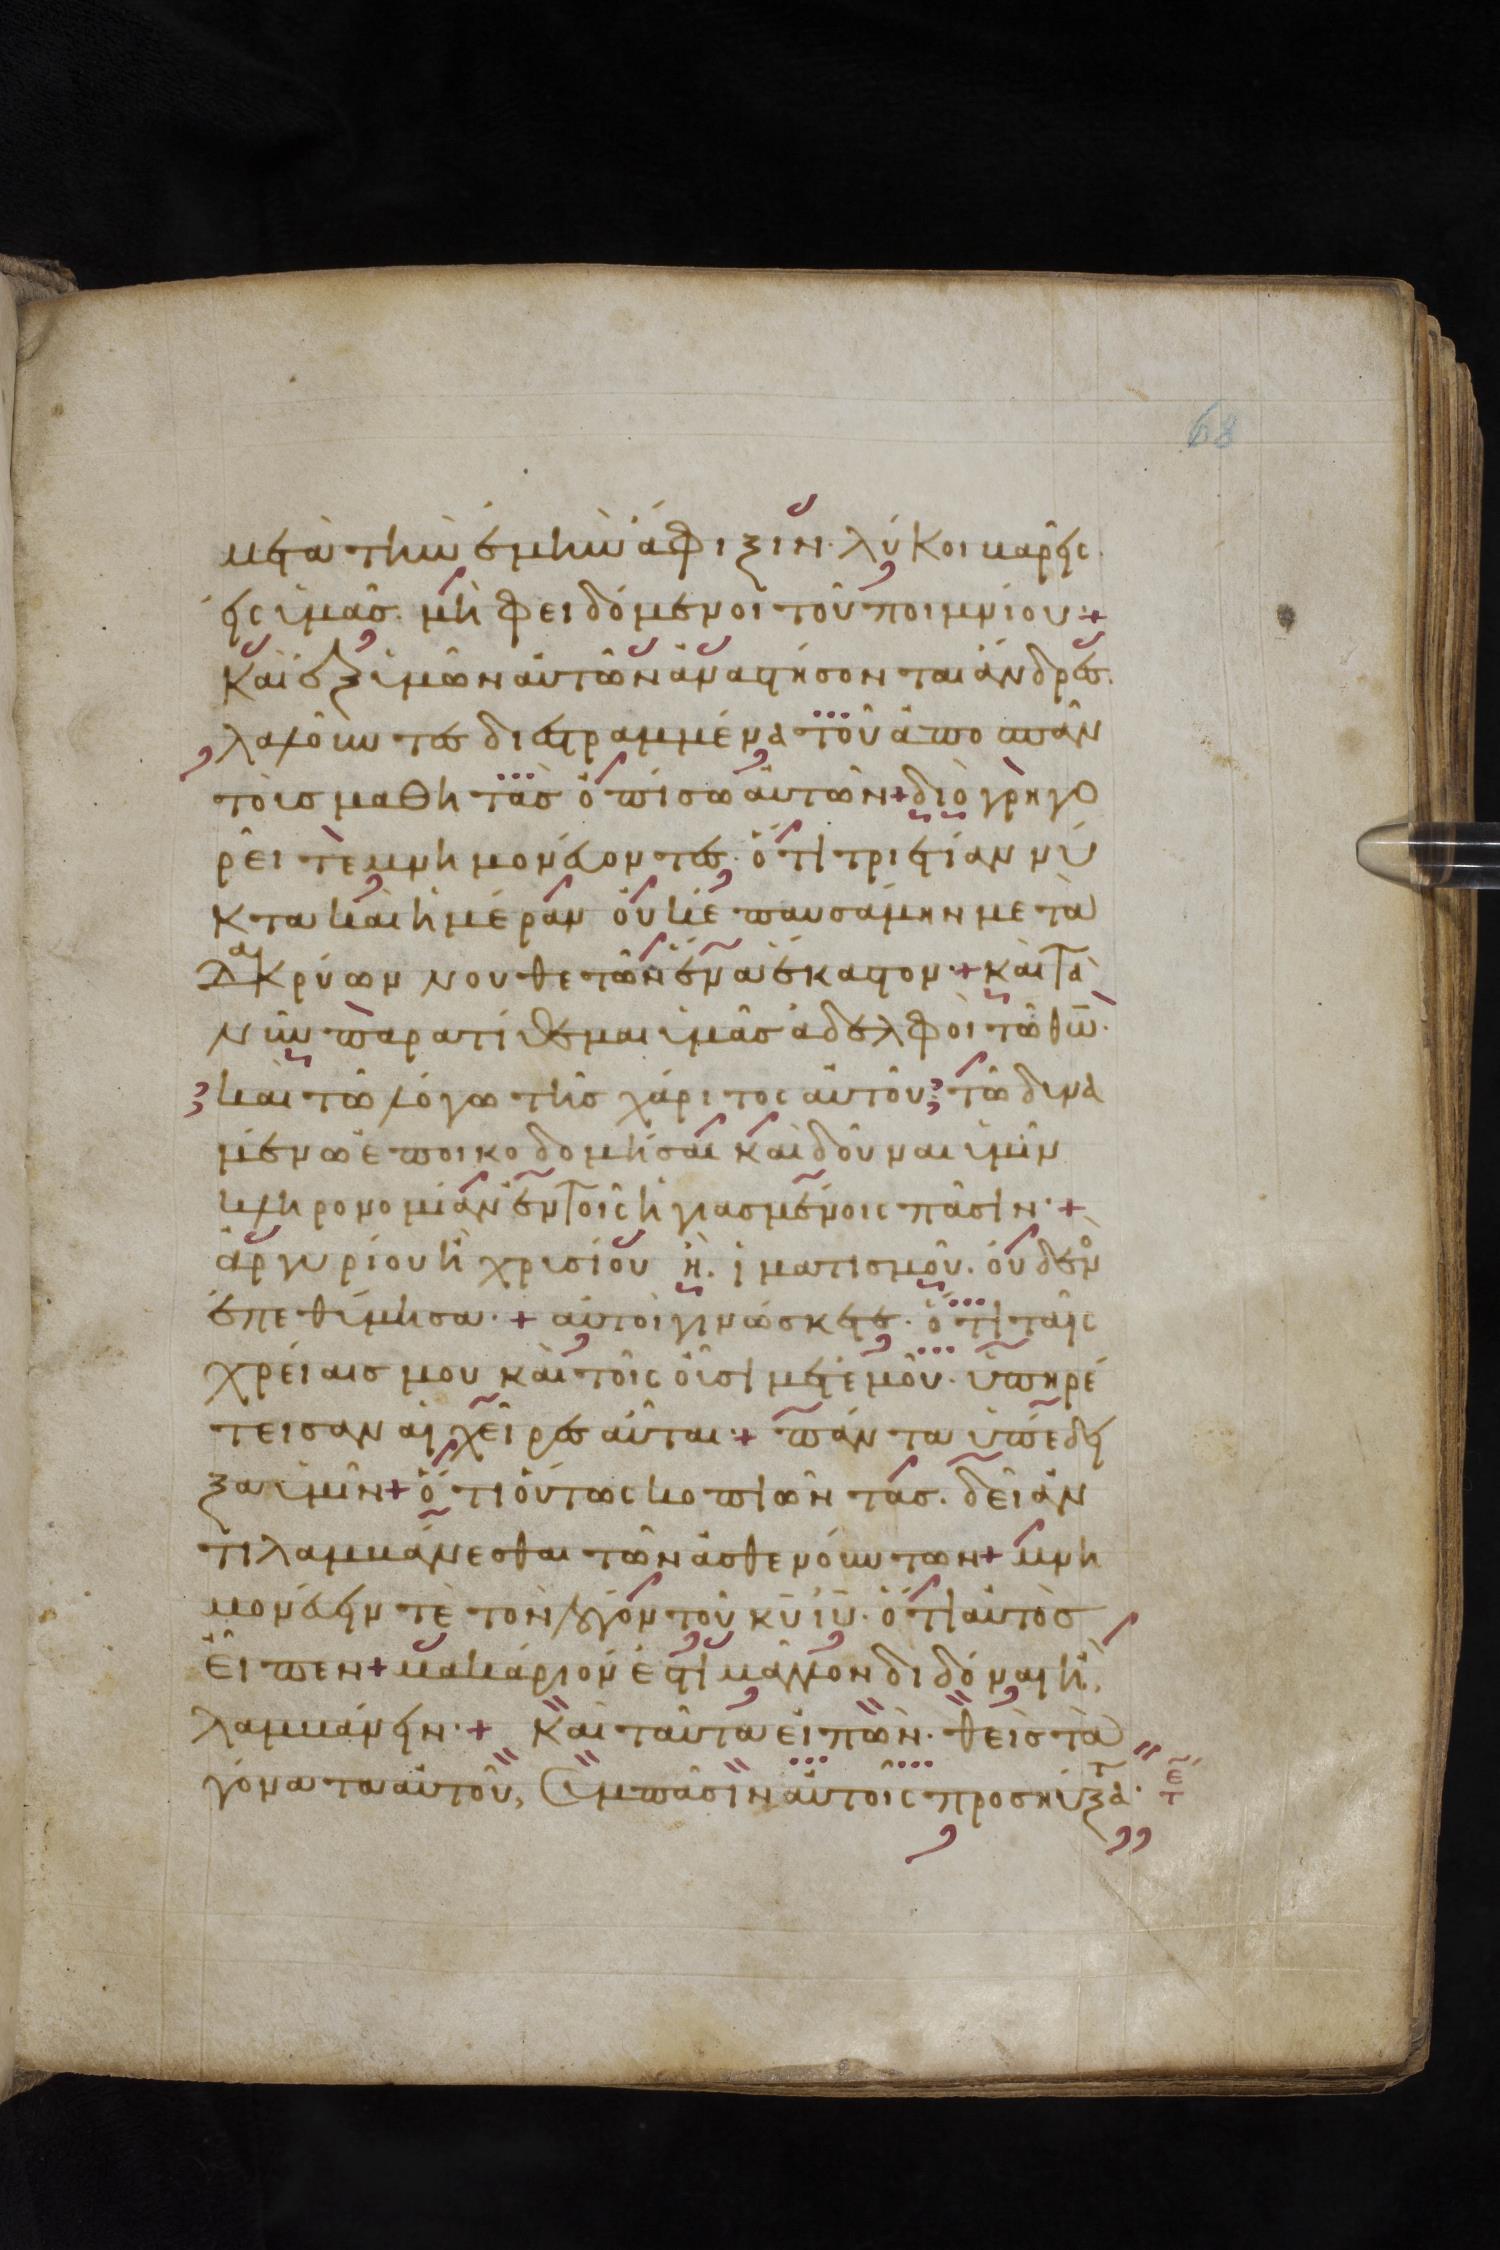 68
μετὰ τὴν ἐμὴν ἄφιξιν· λύκοι βαρεῖς·
εἰς ὑμᾶς· μὴ φειδόμενοι τοῦ ποιμνίου·+
Καὶ ἐξ ὑμῶν αὐτῶν ἀναστήσονται ἄνδρες·
λαλοῦντες διεστραμμένα τοῦ ἀποσπᾶν
τοὺς μαθητὰς ὀπίσω αὐτῶν+ διὸ γρηγο
ρεῖτε μνημονεύοντες· ὅτι τριετίαν νύ
κτα καὶ ἡμέραν οὐκ ἐπαυσάμην μετὰ
δακρύων νουθετῶν ἕνα ἕκαστον·+ καὶ τὰ
νῦν παρατίθεμαι ὑμᾶς ἀδελφοὶ τῶ θω̅·
καὶ τῶ λόγω τῆς χάριτος αὐτοῦ· τῶ δυνα
μένω ἐποικοδομῆσαι καὶ δοῦναι ὑμῖν
κληρονομίαν ἐν τοῖς ἡγιασμένοις πᾶσιν·+
ἀργυρίου ἢ χρυσίου ἢ· ἱματισμοῦ· οὐδενὸ
ἐπεθύμησα·+ αὐτοὶ γινώσκετε· ὅτι ταῖς
χρείαις μου καὶ τοῖς οὖσι μετ' ἐμοῦ· ὑπηρέ
τεισαν αἱ χεῖρες αὗται·+ πάντα ὑπέδει
ξα ὑμῖν+ ὅτι οὕτως κοπιῶντας· δεῖ ἀν
τιλαμβάνεσθαι τῶν ἀσθενούντων+ μνη
μονεύειν τε τὸν λόγον τοῦ κυ̅ ιυ̅· ὅτι αὐτὸς
εἶπεν+ μακάριον ἐστὶ μᾶλλον διδόναι ἢ
λαμβάνειν·+ Καὶ ταῦτα εἰπών· θεὶς τὰ
γόνατα αὐτοῦ, σὺν πᾶσιν αὐτοῖς προσηύξατ·